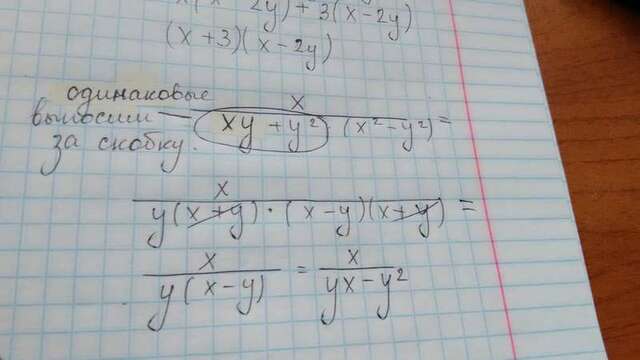 x(x - 2y) + 3(x - 2y)
(x + 3)(x - 2y)
одинаковые
выносим
за скобку.
x
xy + y² (x² - y²) =
x
y(x + y) · (x - y)(x + y) =
x x
y(x - y) = yx - y²